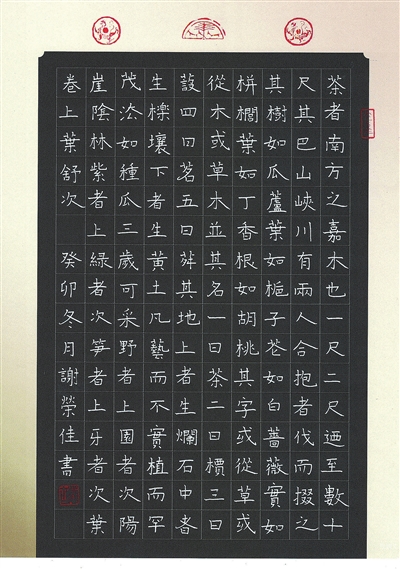 茶者南方之嘉木也一尺二尺迺至數十
尺其巴山峽川有兩人合抱者伐而掇之
其樹如瓜蘆葉如梔子花如白薔薇實如
栟櫚葉如丁香根如胡桃其字或從草或
從木或草木並其名一曰茶二曰檟三曰
蔎四曰茗五曰荈其地上者生爛石中者
生櫟壤下者生黃土凡藝而不實植而罕
茂法如種瓜三歲可采野者上園者次陽
崖陰林紫者上綠者次笋者上牙者次葉
卷上葉舒次 癸卯冬月謝榮佳書